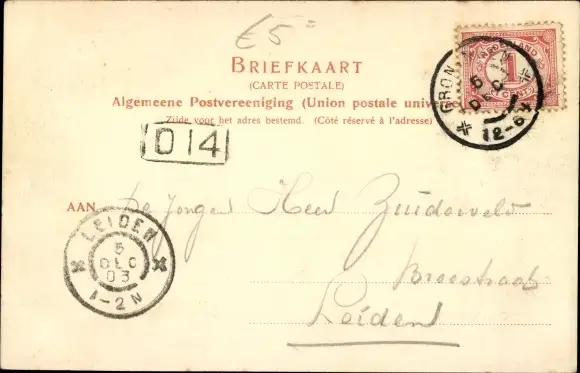 £5=
BRIEFKAART
(CARTE POSTALE)
Algemeene Postvereeniging (Union postale universe
Zijde voor het adres bestemd. (Côté réservé à l'adresse)
NEDERLAND
1
CENT
GRON
5
DEC
12-6
D 14
AAN De Jongen Heer Zuiderveld
LEIDEN
5
DEC
03
1-2 N
Breestraat
Leiden